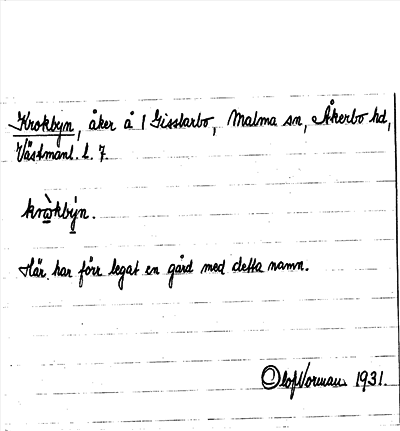 Krokbyn, åker å 1 Gisslarbo, Malma sn, Åkerbo hd,
Västmanl. l. 7.
kro̱̊̀kbý̱n.
Här har förr legat en gård med detta namn.
Olof Norman 1931.